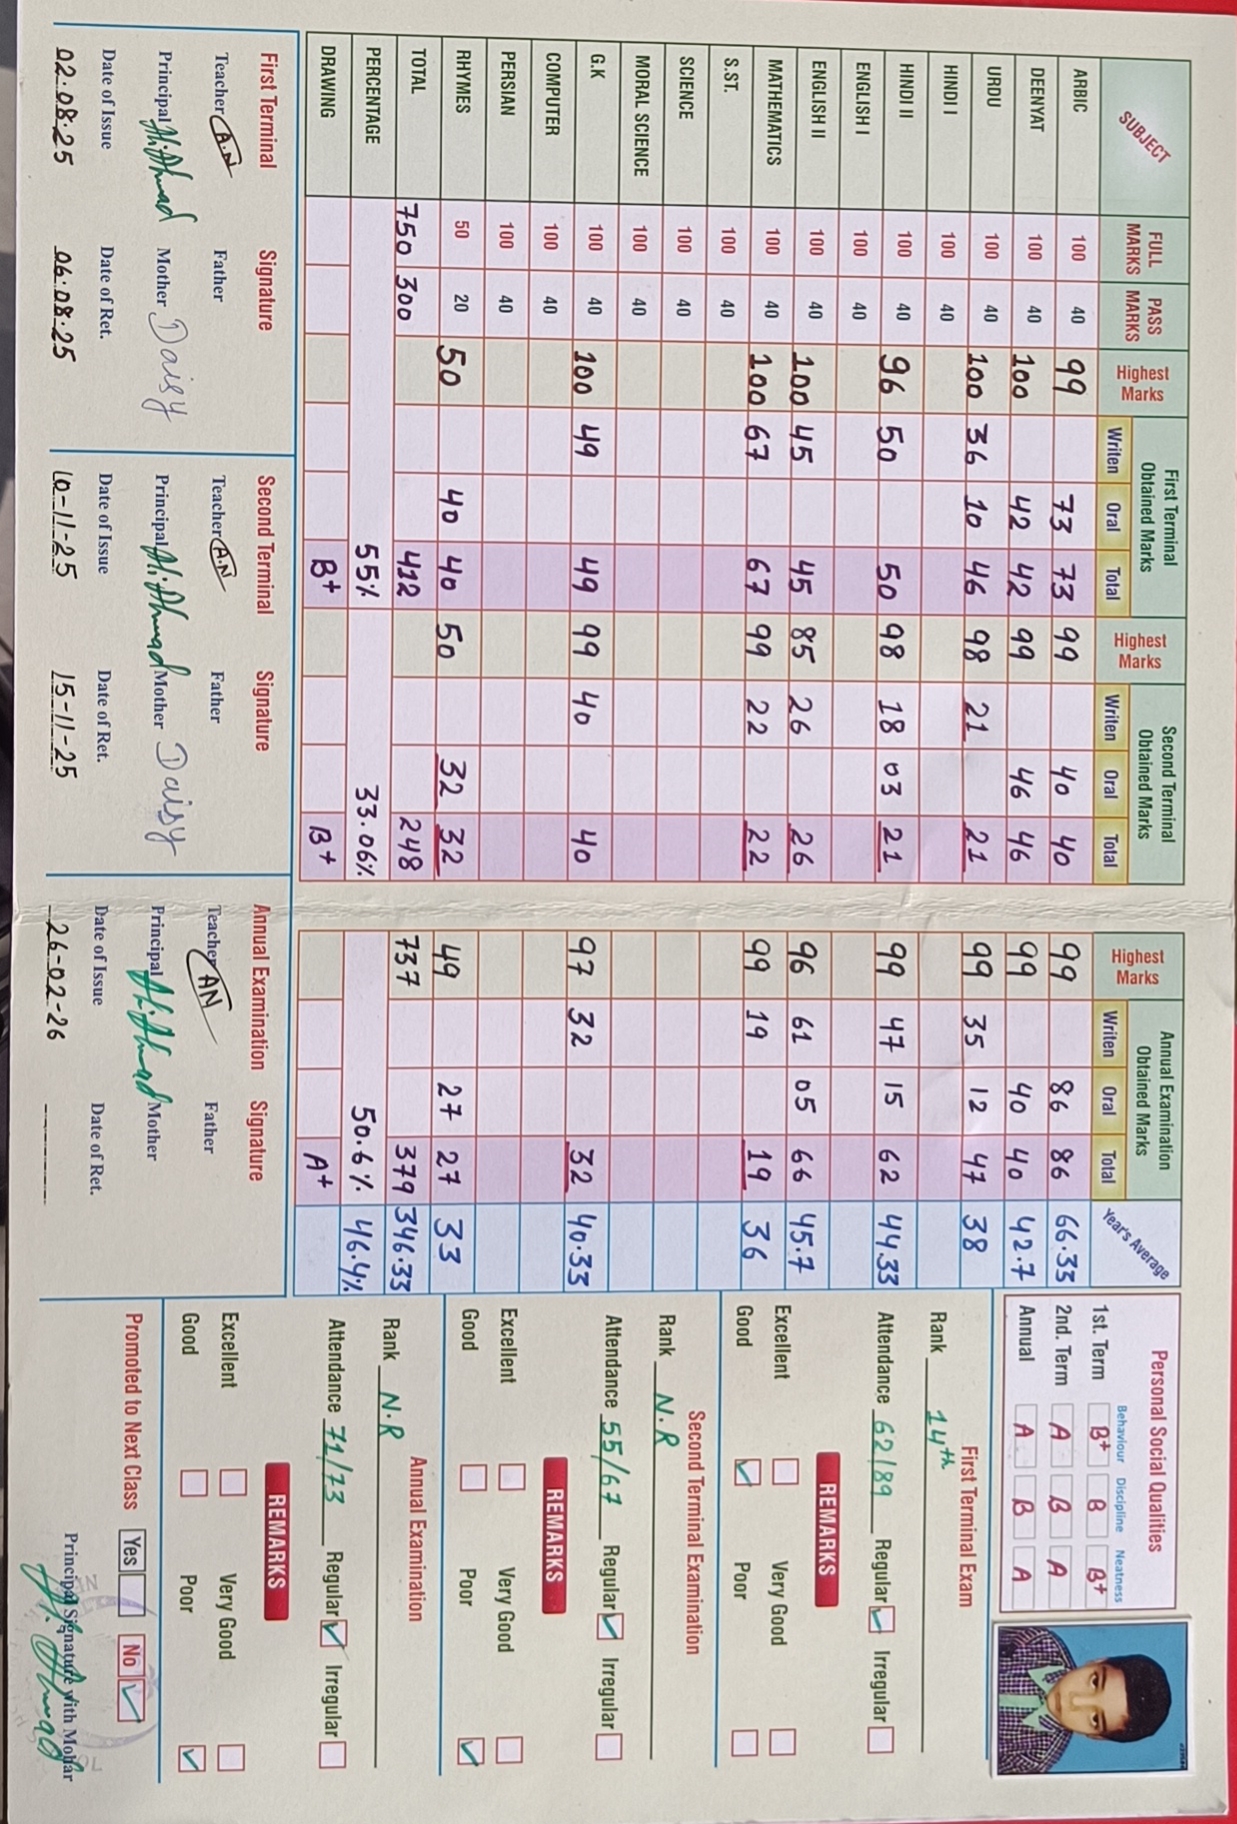 SUBJECT FULL MARKS PASS MARKS Highest Marks First Terminal Obtained Marks Writen Oral Total Highest Marks Second Terminal Obtained Marks Writen Oral Total Highest Marks Annual Examination Obtained Marks Writen Oral Total Year's Average
ARBIC 100 40 99 73 73 99 40 40 99 86 86 66.33
DEENYAT 100 40 100 42 42 99 46 46 99 40 40 42.7
URDU 100 40 100 36 10 46 98 21 21 99 35 12 47 38
HINDI I 100 40
HINDI II 100 40 96 50 50 98 18 03 21 99 47 15 62 44.33
ENGLISH I 100 40
ENGLISH II 100 40 100 45 45 85 26 26 96 61 05 66 45.7
MATHEMATICS 100 40 100 67 67 99 22 22 99 19 19 36
S.ST. 100 40
SCIENCE 100 40
MORAL SCIENCE 100 40
G.K 100 40 100 49 49 99 40 40 97 32 32 40.33
COMPUTER 100 40
PERSIAN 100 40
RHYMES 50 20 50 40 40 50 32 32 49 27 27 33
TOTAL 750 300 412 248 737 379 346.33
PERCENTAGE 55% 33.06% 50.6% 46.4%
DRAWING B+ B+ A+
First Terminal Signature
Teacher A.N Father
Principal Ali Ahmad Mother Daisy
Date of Issue Date of Ret.
02.08.25 06.08.25
Second Terminal Signature
Teacher A.N Father
Principal Ali Ahmad Mother Daisy
Date of Issue Date of Ret.
10-11-25 15-11-25
Annual Examination Signature
Teacher AN Father
Principal Ali Ahmad Mother
Date of Issue Date of Ret.
26-02-26
Personal Social Qualities
Behaviour Discipline Neatness
1st. Term B+ B B+
2nd. Term A B A
Annual A B A
First Terminal Exam
Rank 14th
Attendance 62/89 Regular Irregular
REMARKS
Excellent Very Good
Good Poor
Second Terminal Examination
Rank N.R
Attendance 55/67 Regular Irregular
REMARKS
Excellent Very Good
Good Poor
Annual Examination
Rank N.R
Attendance 71/73 Regular Irregular
REMARKS
Excellent Very Good
Good Poor
Promoted to Next Class Yes No
Principal Signature with Mohar